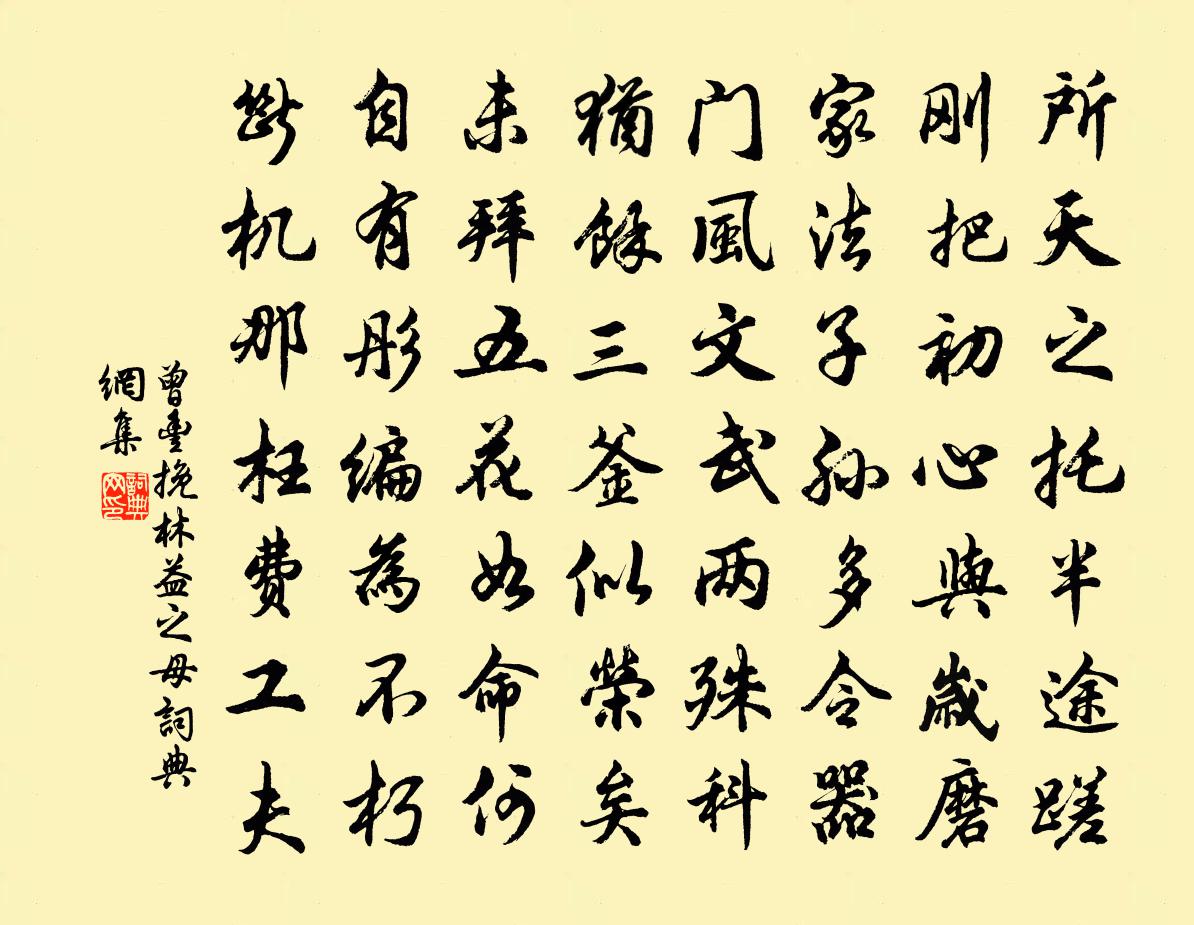 所天之托半途蹉
刚把初心與歲磨
家法子孙多令器
门風文武两殊科
猶餘三釜似榮矣
未拜五花如命何
自有彤编為不朽
斷机那枉費工夫
曾豊挽林益之母詞典
網集
詞典
网印